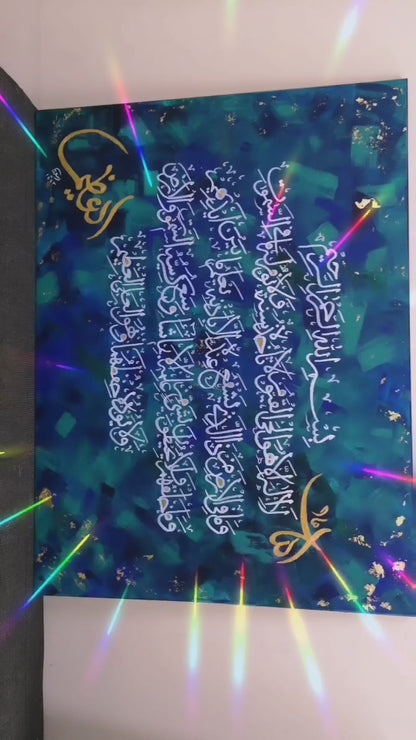 بسم الله الرحمن الرحيم
الله لا إله إلا هو الحي القيوم لا تأخذه سنة ولا نوم له ما في السموت
وما في الأرض من ذا الذي يشفع عنده إلا بإذنه يعلم ما بين أيديهم
وما خلفهم ولا يحيطون بشيء من علمه إلا بما شاء وسع كرسيه السموت والأرض
ولا يؤده حفظهما وهو العلي العظيم